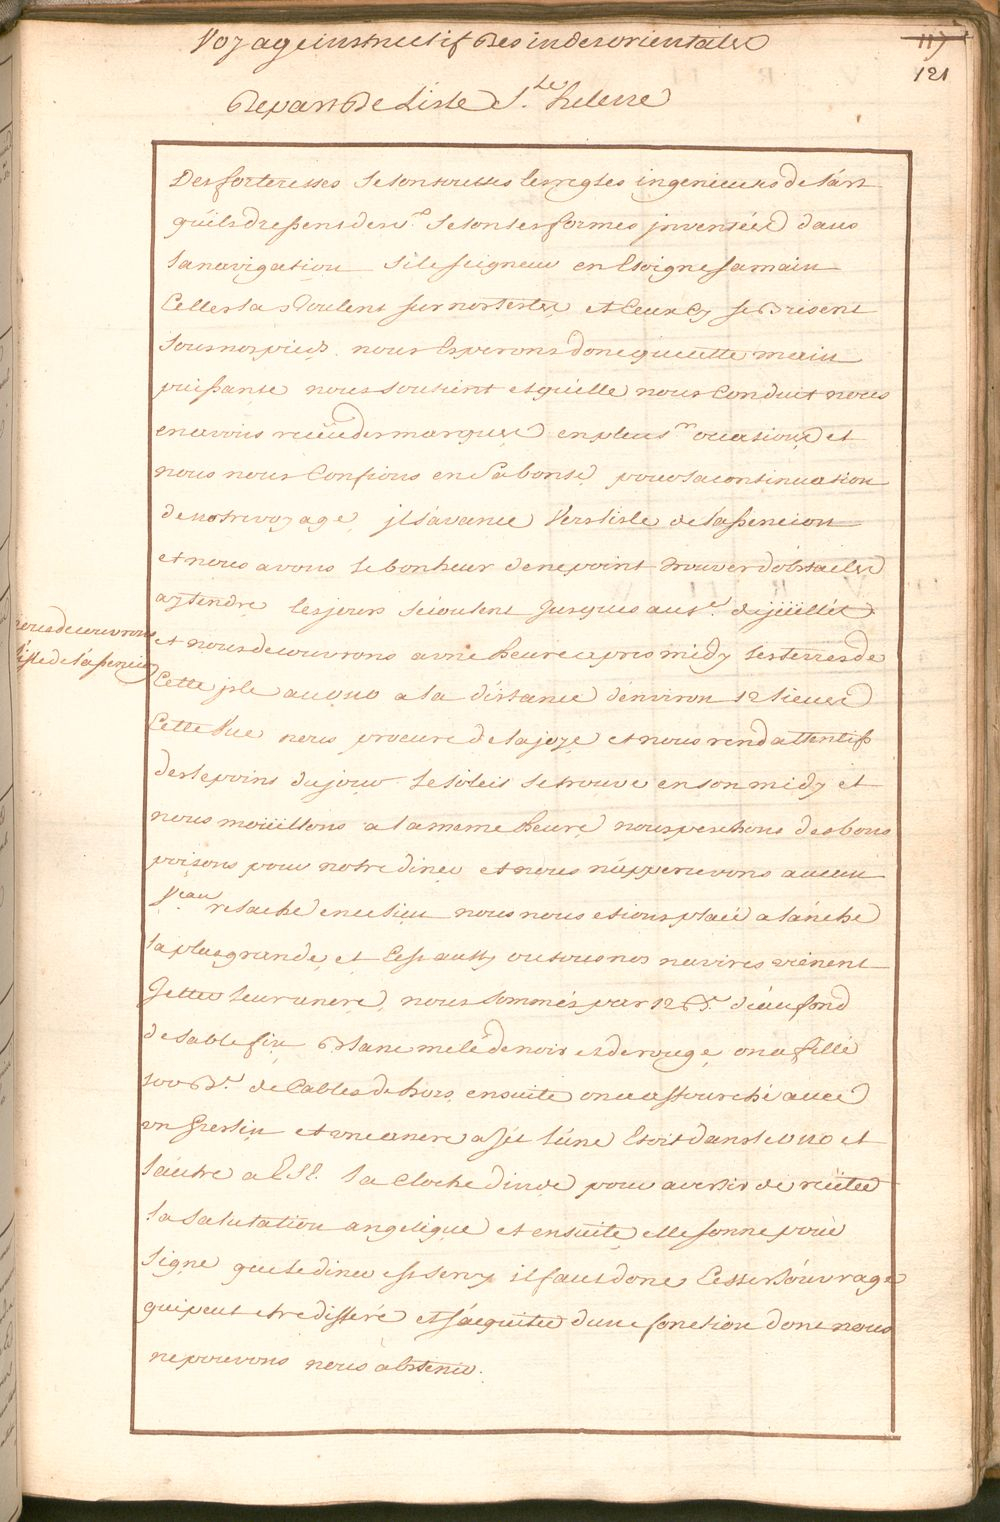 Voyage instructif Des indes orientales
117
121
Depart De Lisle Ste. helene
Des forteresses selon toutes les regles ingenieurs de l'art
qu'ils dressent selon les formes inventées dans
la navigation si le seigneur en Eloigne sa main
Celles la Roulent sur nos testes et Ceux Cy se Brisent
sous nos pieds. nous Esperons donc que cette main
puissante nous soutient et qu'elle nous Conduit nous
en avons reçeu des marques en plusrs. ocasions et
nous nous Confions en sa bonté pour la continuation
de notre voyage, jl s'avance Vers lisle de lassencion
et nous avons le bonheur de ne point trouver d'obstacles
a y tendre les jours s'écoulent jusques au de juillét
et nous decouvrons a une heure apres midy les terres de
nous decouvrons
lisle de lassencion
Cette jsle au ONO a la distance d'environ 12 lieues
Cette Vue nous procure de la joye et nous rend attentifs
des le point du jour le soleil se trouve en son midy et
nous moüillons a la meme heure, nous peschons des bons
poisons pour notre diner et nous n'appercevons aucun
Veau relaché en ce lieu nous nous etions placé a l'ancre
la plus grande, et C'est aussy ou tous nos navires viénent
Jetter leur ancre, nous sommes par 12 Br. d'eau fond
de sable fin Blanc melé de noir et de rouge, on a fillé
100 Br. de Cables dehors, ensuite on a affourché avec
un Grelin et une ancre a Jét l'une Etoit dans le ONO et
l'autre a ESE. la cloche dinde pour avertir de recitér
la salutation angelique et ensuite elle sonne pour
signe que le diner est servy il faut donc Cesser l'ouvrage
qui peut etre differé et s'acquiter d'une fonction dont nous
ne pouvons nous abstenir.